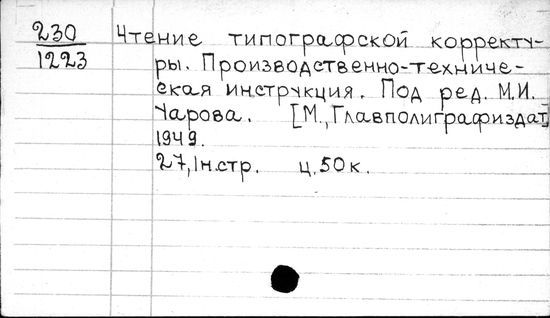 230
1223
Чтение типографской корректу-
ры. Производственно-техниче-
ская инструкция. Под ред. М.И.
Уарова. [М., Главполиграфиздат]
1949.
27, 1н.стр. ц. 50 к.